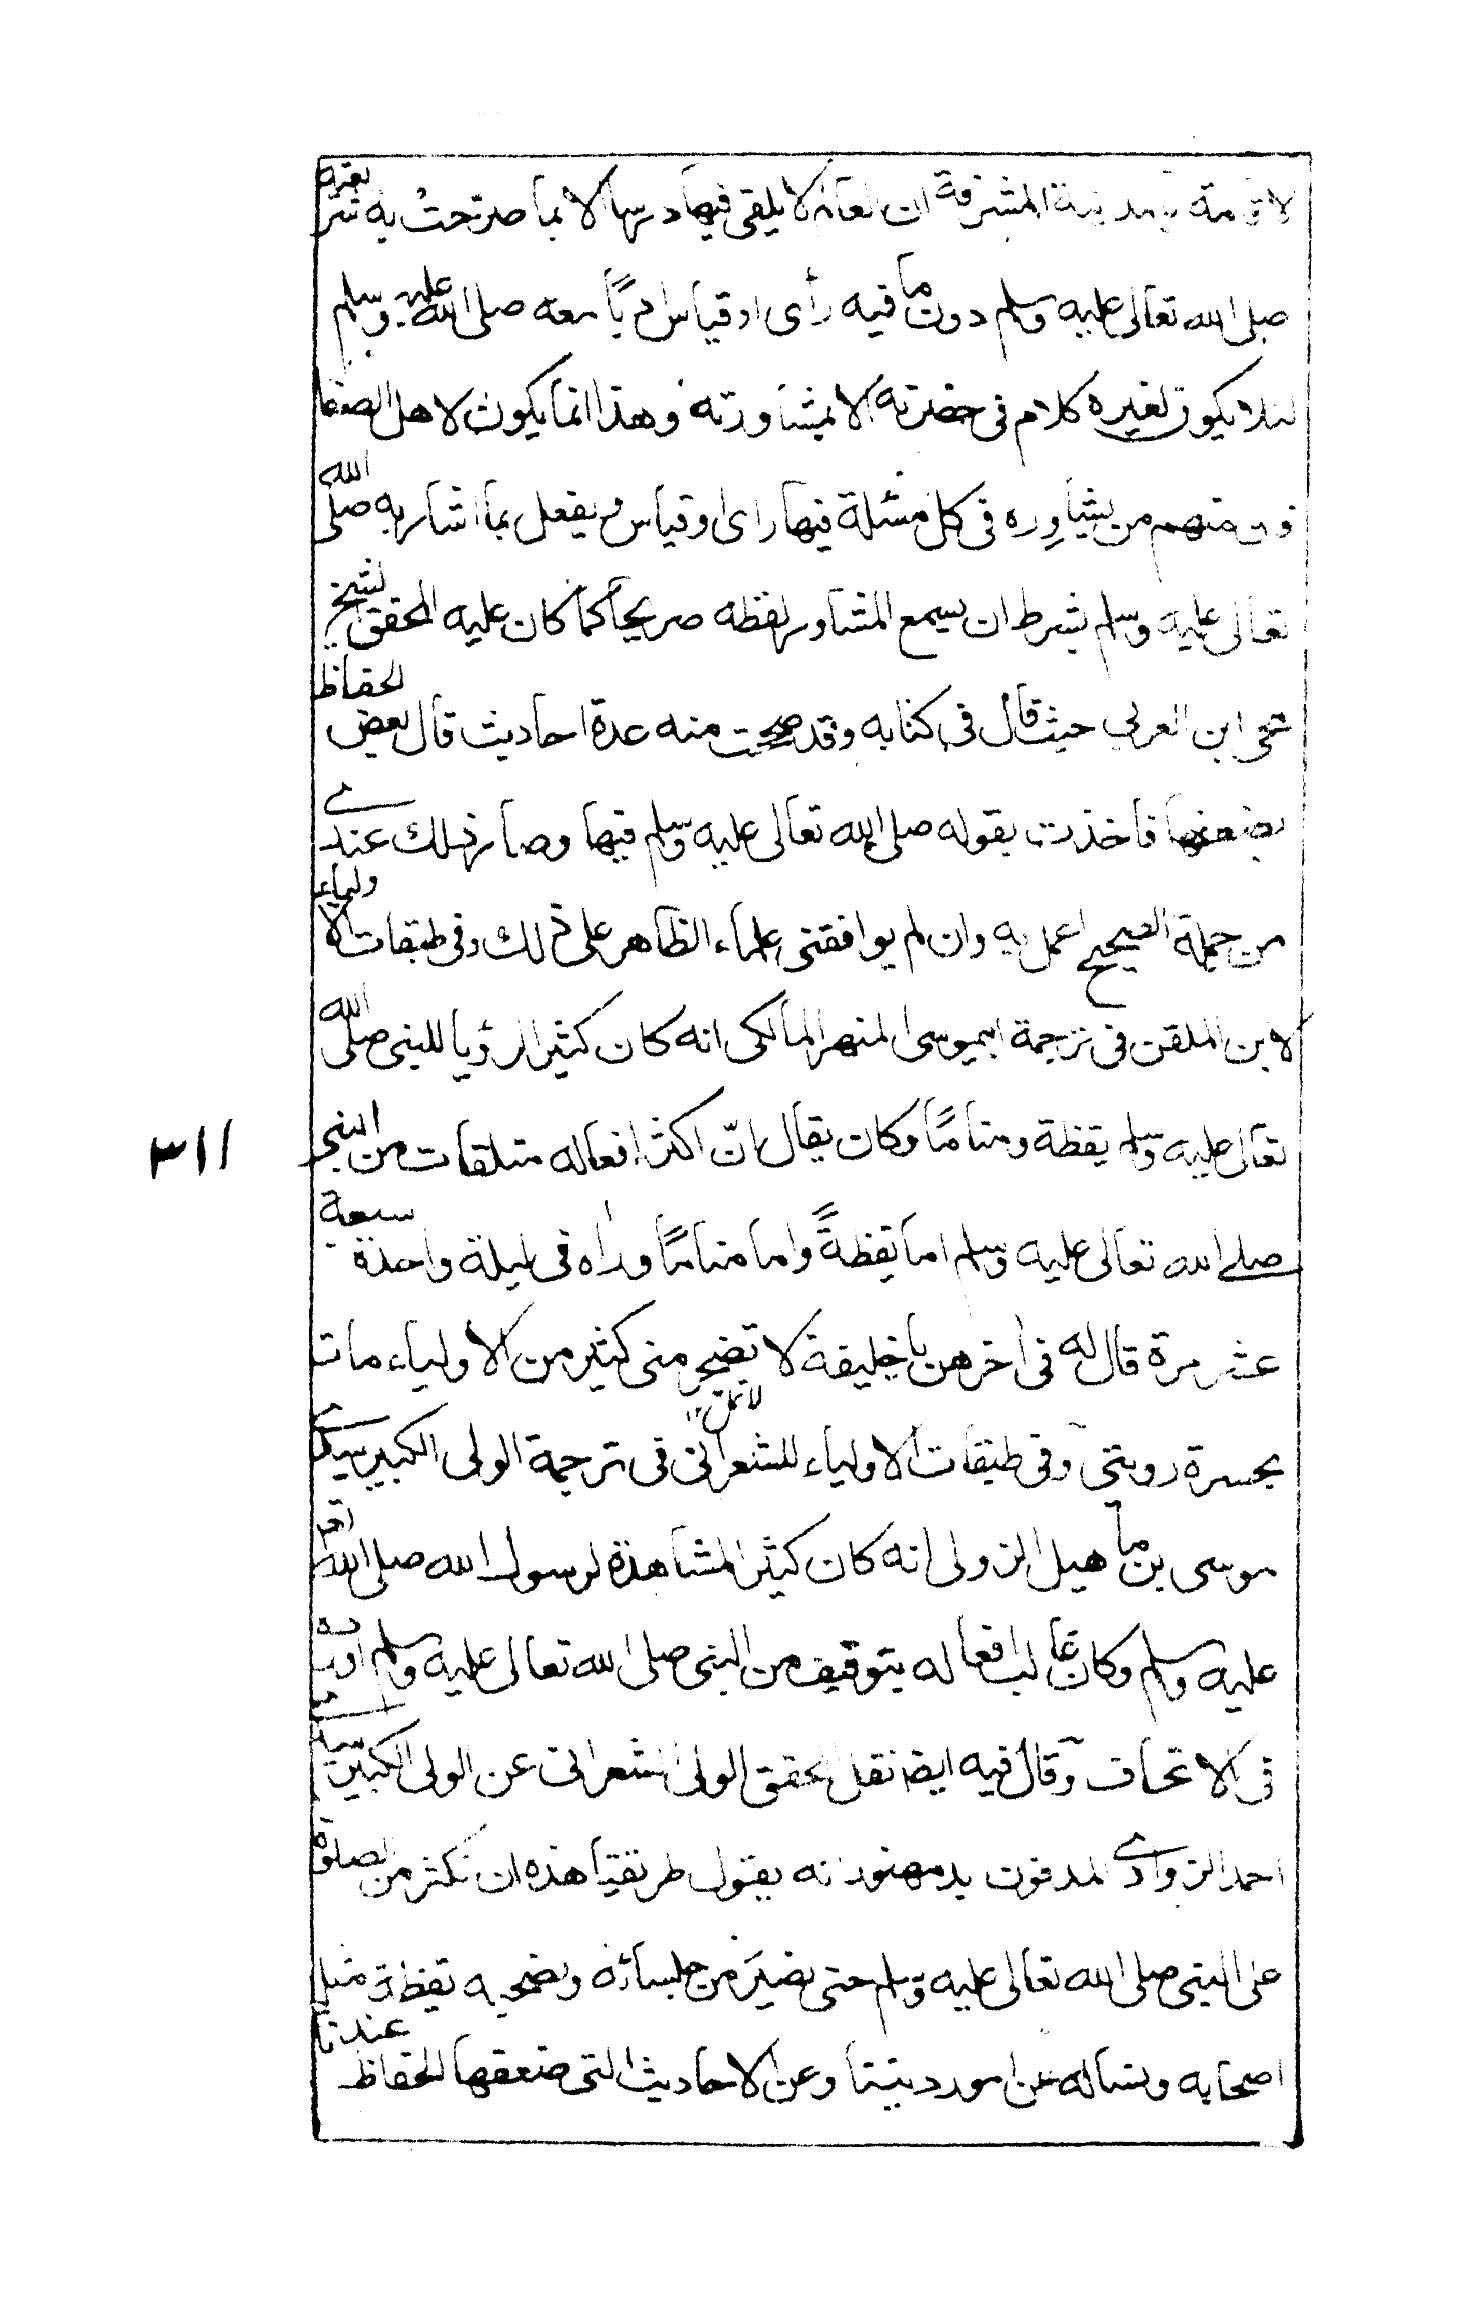 لاقامة بالمدينة المشرفة ان العالم لا يلقى فيها درسا الا بما صرّحت به شريعته
صلى الله تعالى عليه وسلم دون ما فيه رأى او قياس ادبًا معه صلى الله عليه وسلم
لئلا يكون لغيره كلام فى حضرته الا بمشاورته وهذا انما يكون لاهل الصفا
فان منهم من يشاوره فى كل مسئلة فيها راى او قياس ويفعل بما اشار به صلى الله
تعالى عليه وسلم بشرط ان يسمع المشاور لفظه صريحا كما كان عليه المحقق الشيخ
محى ابن العربي حيث قال فى كتابه وقد صححت منه عدة احاديث قال بعض الحفاظ
بضعفها فاخذت بقوله صلى الله تعالى عليه وسلم فيها وصار ذلك عندى
من جملة الصحيح اعمل به وان لم يوافقنى علماء الظاهر على ذلك وفى طبقات الاولياء
لابن الملقن فى ترجمة ابى موسى المنهر المالكى انه كان كثير الرؤيا للنبى صلى الله
تعالى عليه وسلم يقظة ومنامًا وكان يقال انّ اكثر افعاله متلقات من النبى
صلے الله تعالى عليه وسلم اما يقظةً واما منامًا وراه فى ليلة واحدة سبعة
عشر مرة قال له فى اخرهن يا خليفة لا تضجر منى كثير من الاولياء مات
لا تمل ۱۲
بحسرة رويتى وفى طبقات الاولياء للشعرانى فى ترجمة الولى الكبير سيدى
موسى بن ماهيل الزولى انه كان كثير المشاهدة لرسول الله صلى الله
عليه وسلم وكان غالب افعاله بتوقيف من النبى صلى الله تعالى عليه وسلم اورده
فى الاتحاف وقال فيه ايضا نقل المحقق الولى الشعرانى عن الولى الكبير سيدى
احمد الزواوى المدفون بدمهنور انه يقول طريقتنا هذه ان نكثر من الصلوة
على النبى صلى الله تعالى عليه وسلم حتى نصير من جلسائه ونصحبه يقظة مثل
اصحابه ونساله عن امور ديننا وعن الاحاديث التى ضعفها الحفاظ عندنا
۳۱۱